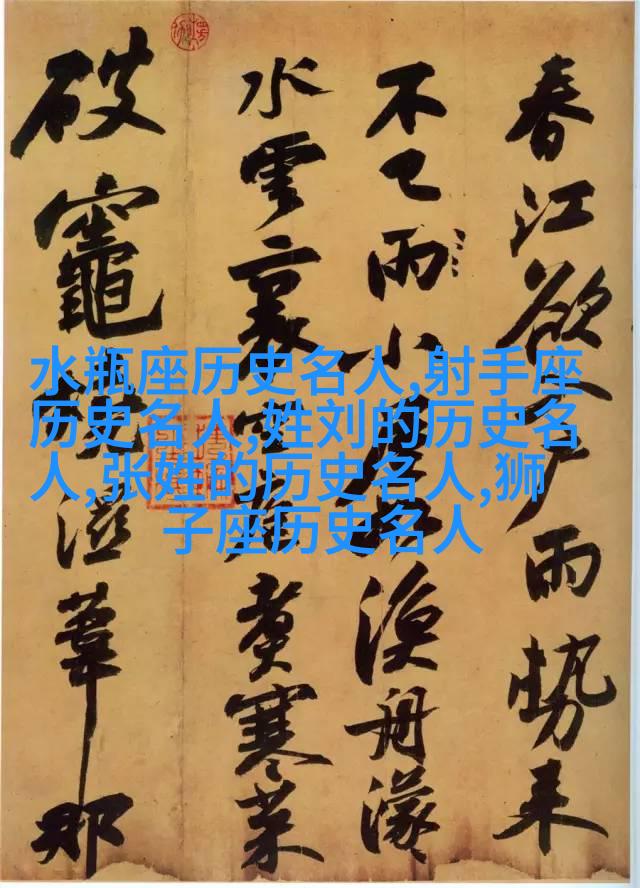 春江欲入户雨勢来
不已雨小漁舟濛
水雲裏空煮寒菜
破竈濕葦那
水瓶座历史名人,射手座
历史名人,姓刘的历史名
人,张姓的历史名人,狮
子座历史名人